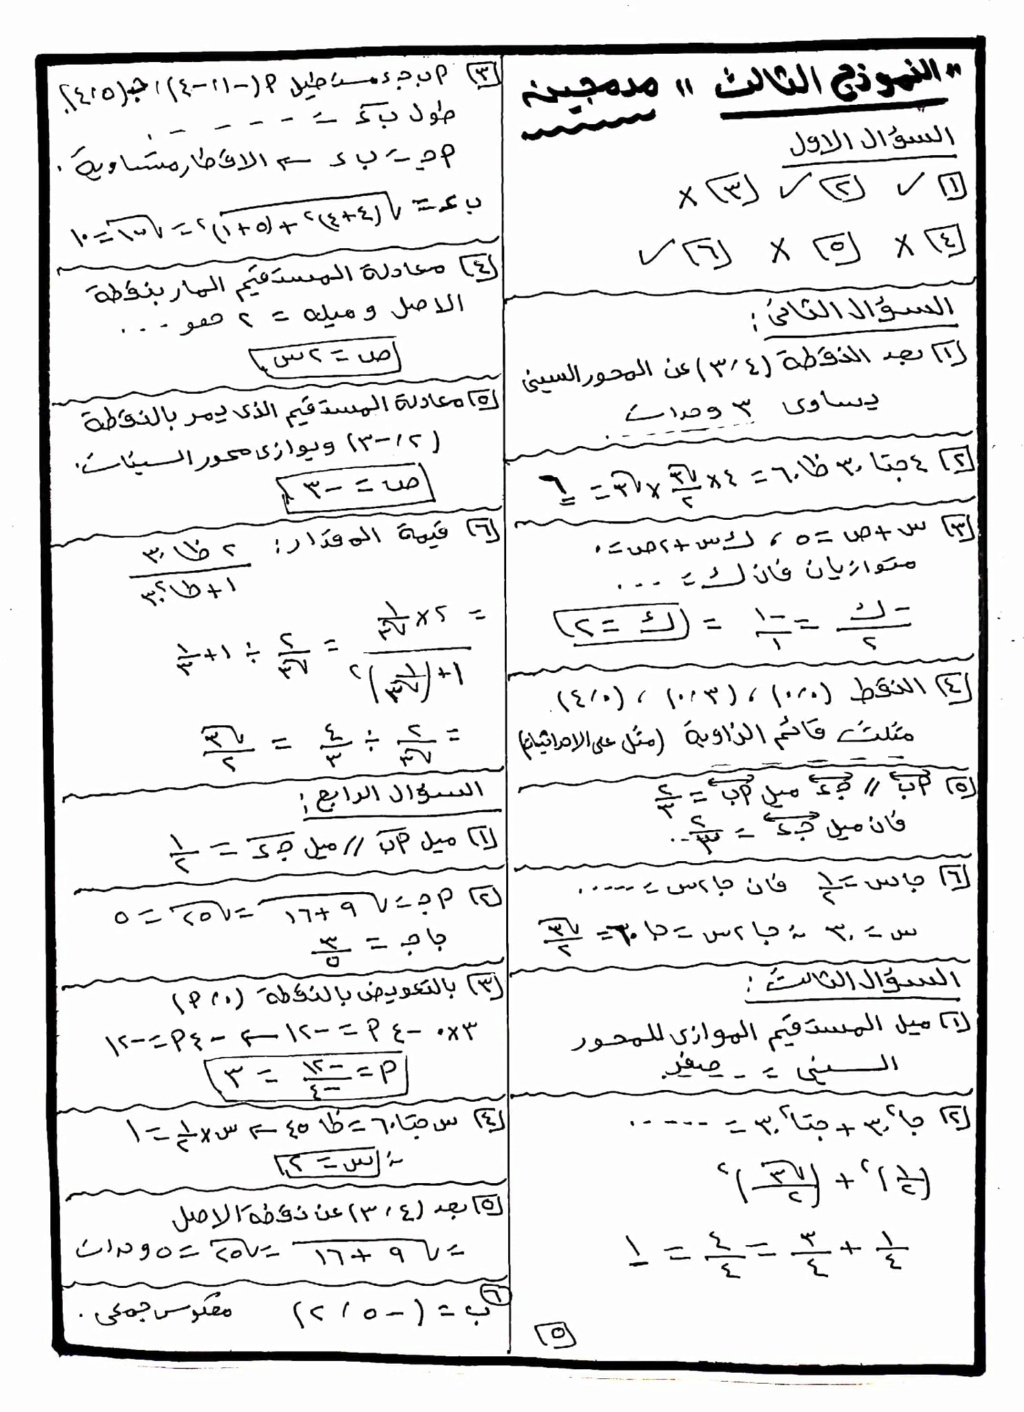 "النموذج الثالث" مدمجين
السؤال الأول
[١] ✓ [٢] ✓ [٣] ×
[٤] × [٥] × [٦] ✓
السؤال الثاني:
[١] بعد النقطة (٤، ٣) عن المحور السيني
يساوى ٣ وحدات
[٢] ٤ جتا ٣٠ ظا ٦٠ = ٤ × √٣/٢ × √٣ = ٦
[٣] س + ص = ٥ ، ك س + ٢ ص = ٠
متوازيان فان ك = ...
-ك/٢ = -١/١ = [ك = ٢]
[٤] النقط (٠،٠) ، (٣،٠) ، (٠،٤)
مثلث قائم الزاوية (مثل على الاحداثيات)
[٥] أب // جء ميل أب = ٢/٣
فان ميل جء = ٢/٣ ..
[٦] جاس = ١/٢ فان جا ٢س = .....
س = ٣٠ ∴ جا ٢س = جا ٦٠ = √٣/٢
السؤال الثالث:
[١] ميل المستقيم الموازى للمحور
السينى = صفر
[٢] جا²٣٠ + جتا²٣٠ = .....
(١/٢)² + (√٣/٢)²
١/٤ + ٣/٤ = ٤/٤ = ١
[٣] أ ب جـ ء مستطيل أ(-١، -٤) ، جـ(٥، ٤)
طول ب ء = - - - - .
أجـ = ب ء ← الاقطار متساوية .
ب ء = √(٤+٤)² + (٥+١)² = √١٠٠ = ١٠
[٤] معادلة المستقيم المار بنقطة
الاصل وميله = ٢ هو ...
[ص = ٢س]
[٥] معادلة المستقيم الذى يمر بالنقطة
(٢، -٣) ويوازى محور السينات.
[ص = -٣]
[٦] قيمة المقدار: ٢ظا٣٠/١+ظا²٣٠
= ٢ × ١/√٣ / ١+(١/√٣)² = ٢/√٣ ÷ ١ + ١/٣
= ٢/√٣ ÷ ٤/٣ = √٣/٢
السؤال الرابع:
[١] ميل أب // ميل جء = ١/٢
[٢] أجـ = √٩+١٦ = √٢٥ = ٥
جا جـ = ٣/٥
[٣] بالتعويض بالنقطة (٠، أ)
٣×٠ - ٤أ = -١٢ ← -٤أ = -١٢
[أ = -١٢/-٤ = ٣]
[٤] س جتا ٦٠ = ظا ٤٥ ← س × ١/٢ = ١
∴ [س = ٢]
[٥] بعد (٤، ٣) عن نقطة الاصل
= √٩ + ١٦ = √٢٥ = ٥ وحدات
[٦] ب = (-٥، ٢) معكوس جمعى .
[٥]